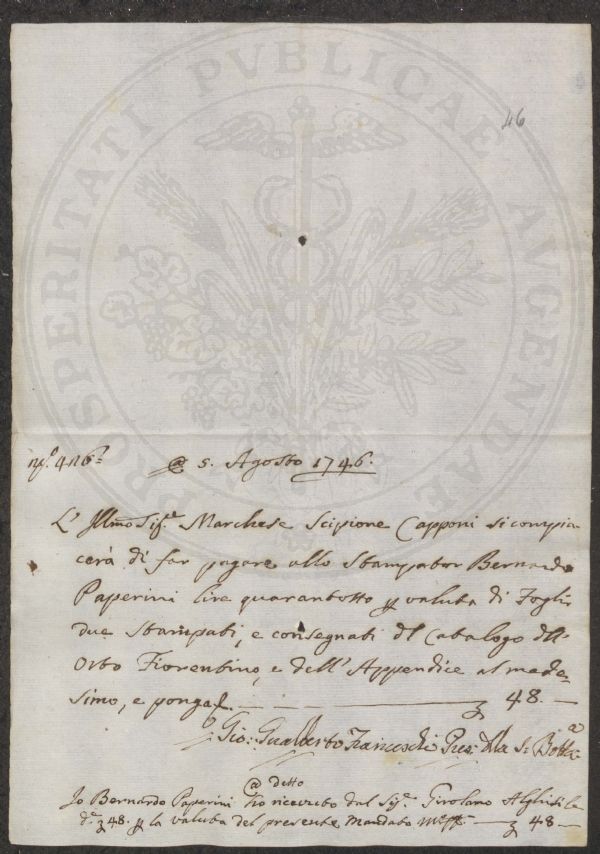 PROSPERITATI PVBLICAE AVGENDAE
46
@ 5. Agosto 1746.
L'Illmo Sig.e Marchese Scipione Capponi si compia-
cerà di far pagare allo Stampator Bernardo
Paperini lire quarantotto p valuta di Fogli
due Stampati, e consegnati del Catalogo dell'
Orto Fiorentino, e dell'Appendice al mede-
simo, e ponga 48. —
Gio: Gualberto Franceschi Pres: della S: Botta.ca
@ detto
Io Bernardo Paperini ho ricevuto dal Sig.e Girolamo le
d.e 48. p la valuta del presente Mandato 48 —